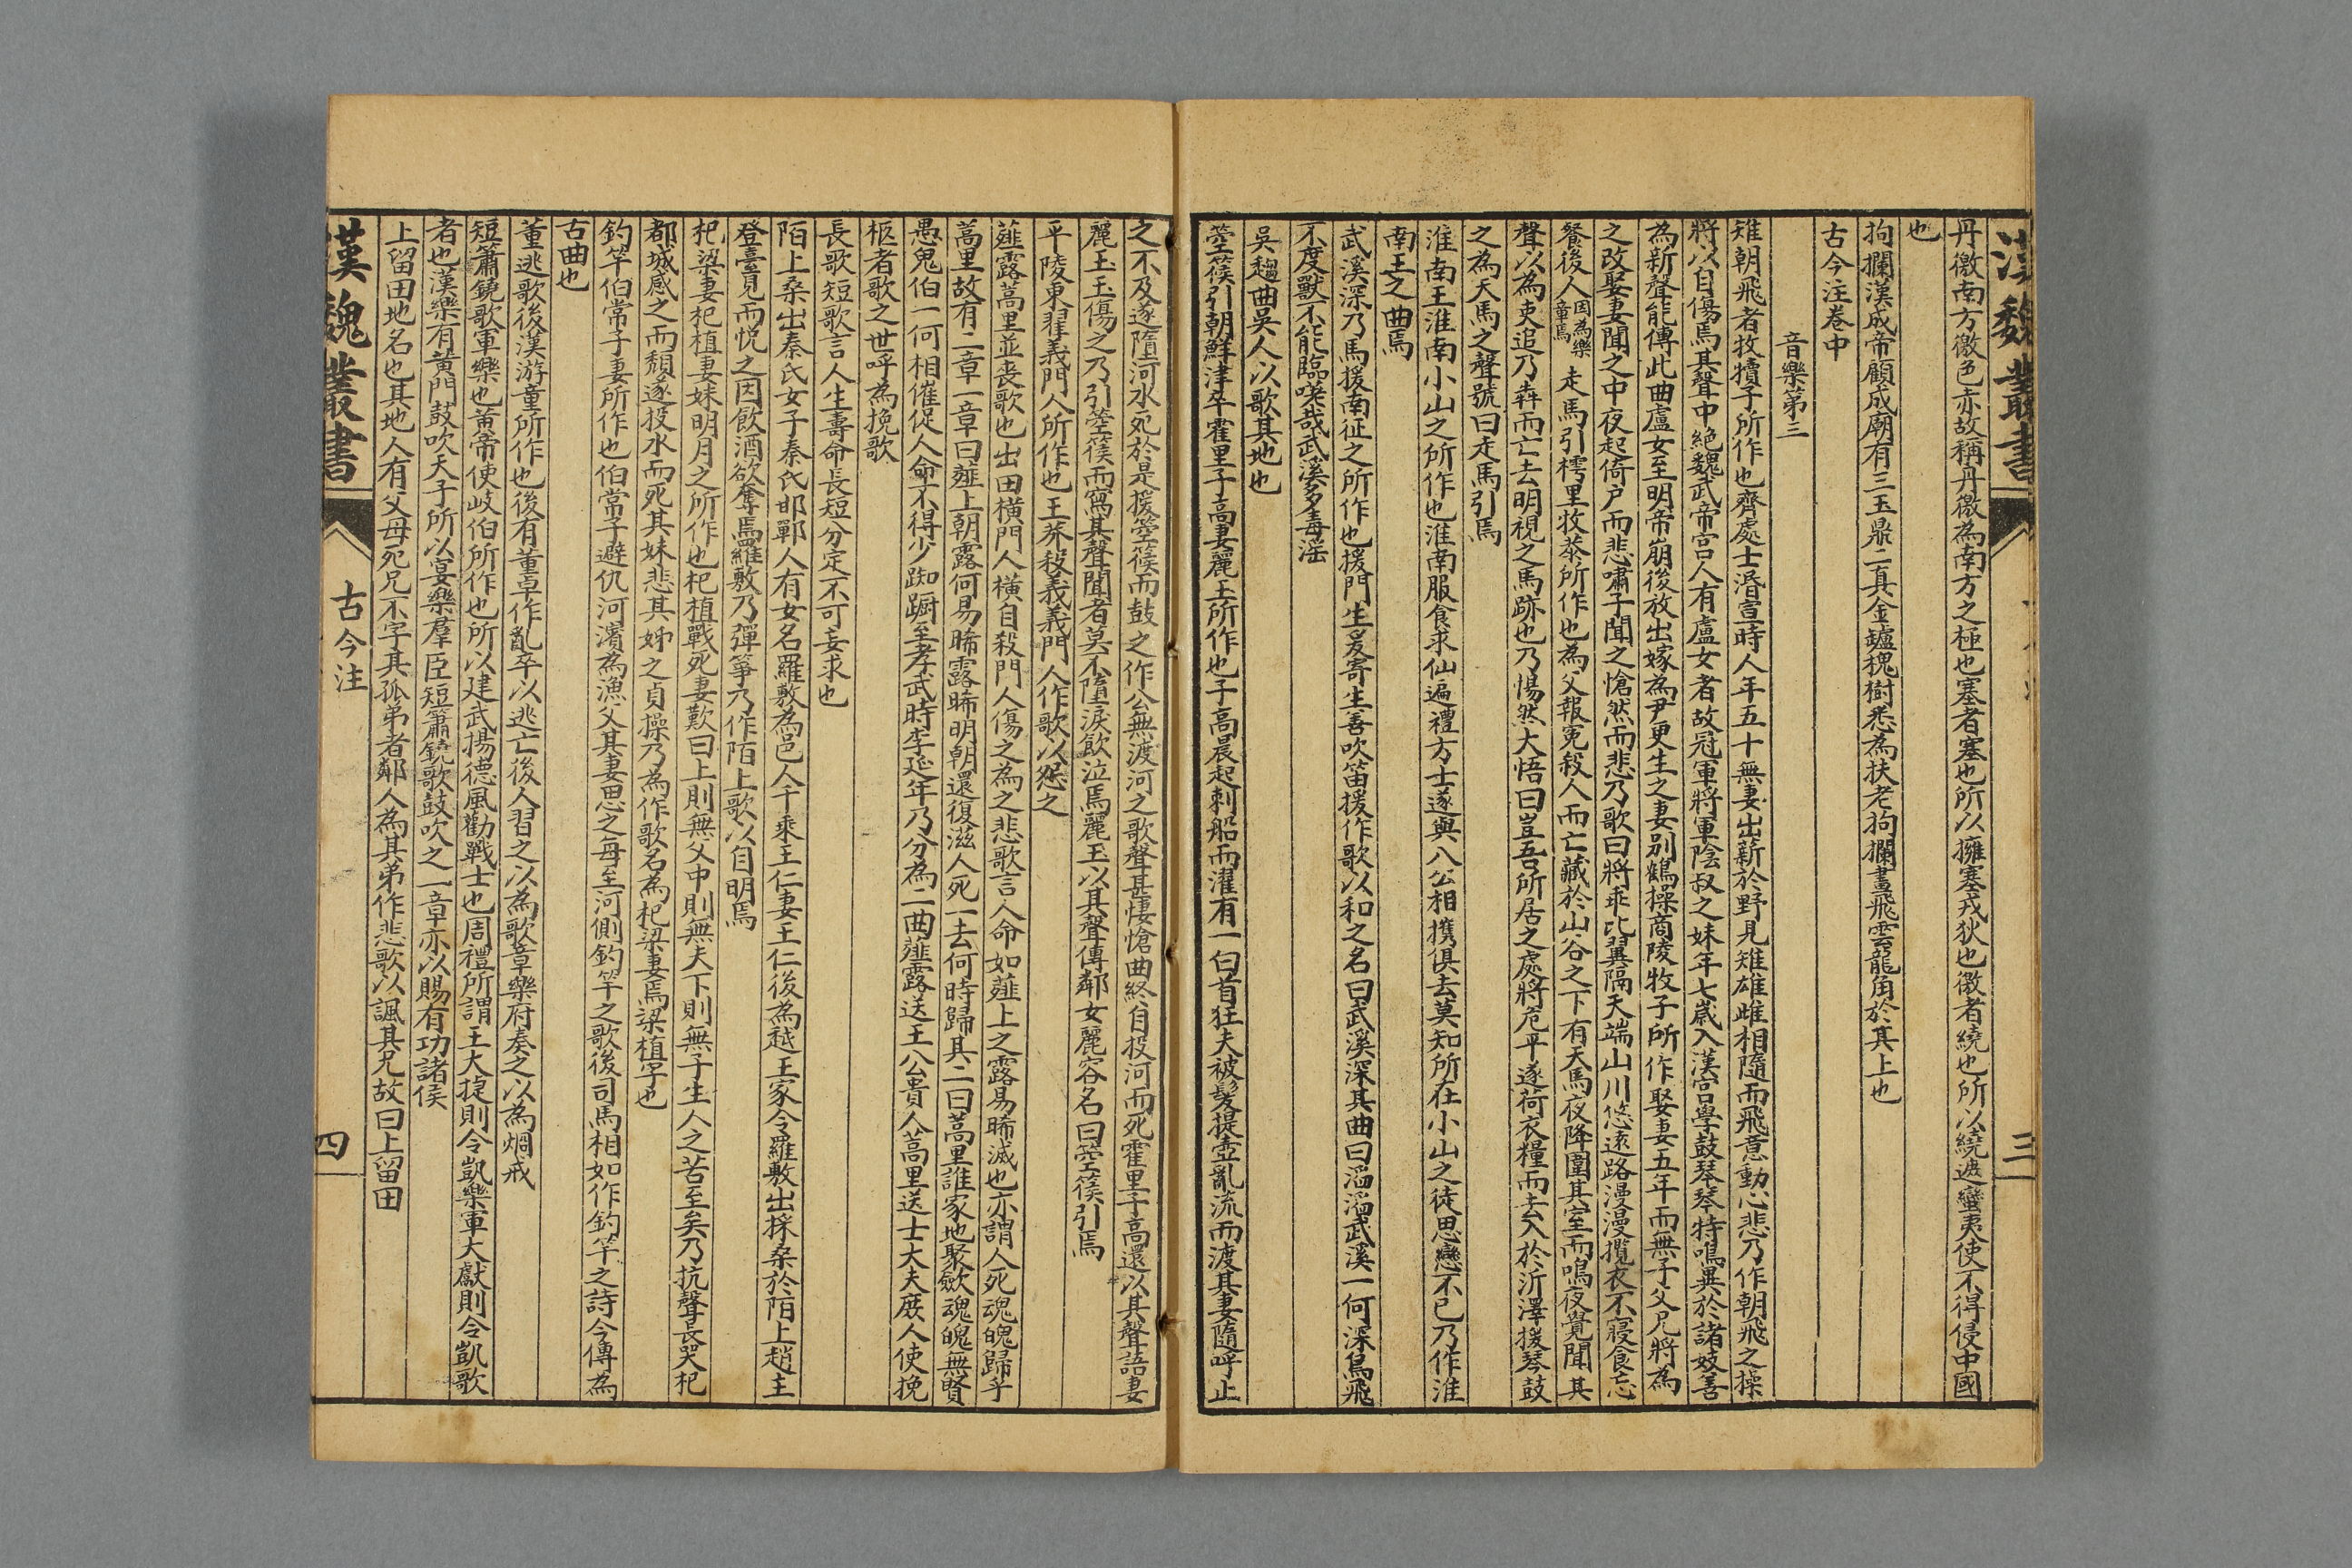 漢魏叢書
三
丹徼南方徼色赤故稱丹徼為南方之極也塞者塞也所以擁塞戎狄也徼者繞也所以繞遮蠻夷使不得侵中國
也
拘攔漢成帝顧成廟有三玉鼎二真金鑪槐樹悉為扶老拘攔畫飛雲龍角於其上也
古今注卷中
音樂第三
雉朝飛者牧犢子所作也齊處士湣宣時人年五十無妻出薪於野見雉雄雌相隨而飛意動心悲乃作朝飛之操
將以自傷焉其聲中絕魏武帝宮人有盧女者故冠軍將軍陰叔之妹年七歲入漢宮學鼓琴琴特鳴異於諸妓善
為新聲能傳此曲盧女至明帝崩後放出嫁為尹更生之妻別鶴操商陵牧子所作娶妻五年而無子父兄將為
之改娶妻聞之中夜起倚戶而悲嘯子聞之愴然而悲乃歌曰將乖比翼隔天端山川悠遠路漫漫攬衣不寢食忘
餐後人因為樂章焉 走馬引樗里牧恭所作也為父報冤殺人而亡藏於山谷之下有天馬夜降圍其室而鳴夜覺聞其
聲以為吏追乃犇而亡去明視之馬跡也乃惕然大悟曰豈吾所居之處將危平遂荷衣糧而去入於沂澤援琴鼓
之為天馬之聲號曰走馬引焉
淮南王淮南小山之所作也淮南服食求仙遍禮方士遂與八公相攜俱去莫知所在小山之徒思戀不已乃作淮
南王之曲焉
武溪深乃馬援南征之所作也援門生爰寄生善吹笛援作歌以和之名曰武溪深其曲曰滔滔武溪一何深鳥飛
不度獸不能臨嗟哉武溪多毒淫
吳趨曲吳人以歌其地也
箜篌引朝鮮津卒霍里子高妻麗玉所作也子高晨起刺船而濯有一白首狂夫被髮提壺亂流而渡其妻隨呼止
之不及遂墮河水死於是援箜篌而鼓之作公無渡河之歌聲甚悽愴曲終自投河而死霍里子高還以其聲語妻
麗玉玉傷之乃引箜篌而寫其聲聞者莫不墮淚飲泣焉麗玉以其聲傳鄰女麗容名曰箜篌引焉
平陵東翟義門人所作也王莽殺義義門人作歌以怨之
薤露蒿里並喪歌也出田橫門人橫自殺門人傷之為之悲歌言人命如薤上之露易晞滅也亦謂人死魂魄歸乎
蒿里故有二章一章曰薤上朝露何易晞露晞明朝還復滋人死一去何時歸其二曰蒿里誰家地聚歛魂魄無賢
愚鬼伯一何相催促人命不得少踟蹰至孝武時李延年乃分為二曲薤露送王公貴人蒿里送士大夫庶人使挽
柩者歌之世呼為挽歌
長歌短歌言人生壽命長短分定不可妄求也
陌上桑出秦氏女子秦氏邯鄲人有女名羅敷為邑人千乘王仁妻王仁後為越王家令羅敷出採桑於陌上趙王
登臺見而悦之因飲酒欲奪焉羅敷乃彈箏乃作陌上歌以自明焉
杞梁妻杞植妻妹明月之所作也杞植戰死妻歎曰上則無父中則無夫下則無子生人之苦至矣乃抗聲長哭杞
都城感之而頹遂投水而死其妹悲其姊之貞操乃為作歌名為杞梁妻焉梁植字也
釣竿伯常子妻所作也伯常子避仇河濱為漁父其妻思之每至河側釣竿之歌後司馬相如作釣竿之詩今傳為
古曲也
董逃歌後漢游童所作也後有董卓作亂卒以逃亡後人習之以為歌章樂府奏之以為烱戒
短簫鐃歌軍樂也黃帝使岐伯所作也所以建武揚德風勸戰士也周禮所謂王大捷則令凱樂軍大獻則令凱歌
者也漢樂有黃門鼓吹天子所以宴樂羣臣短簫鐃歌鼓吹之一章亦以賜有功諸侯
上留田地名也其地人有父母死兄不字其孤弟者鄰人為其弟作悲歌以諷其兄故曰上留田
漢魏叢書
古今注
四